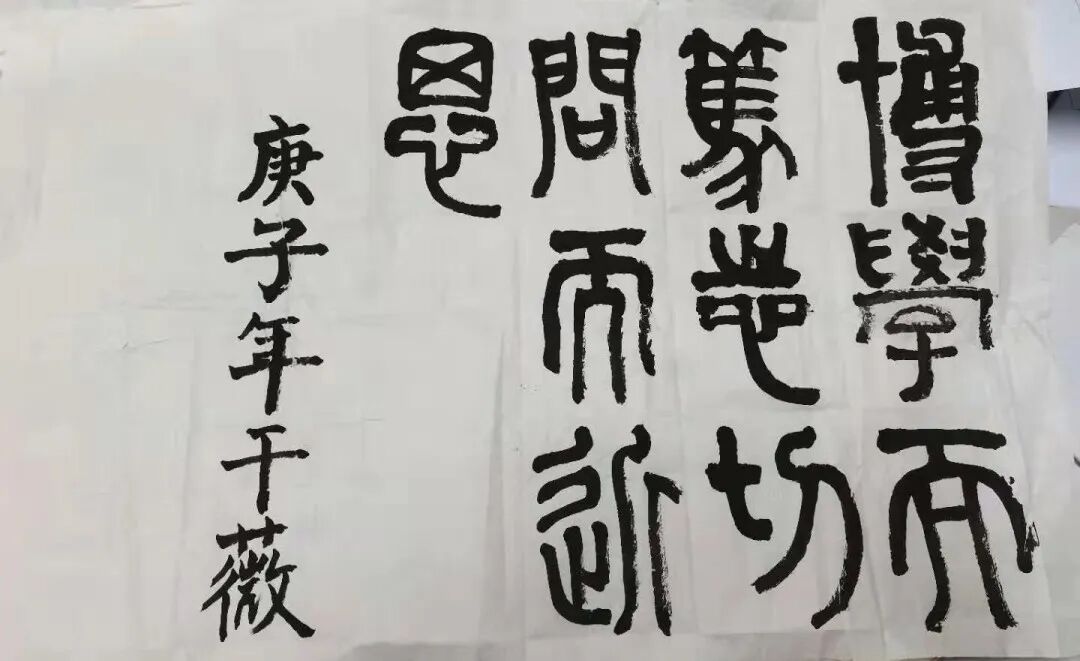 博學而
篤志切
問而近
思
庚子年干薇